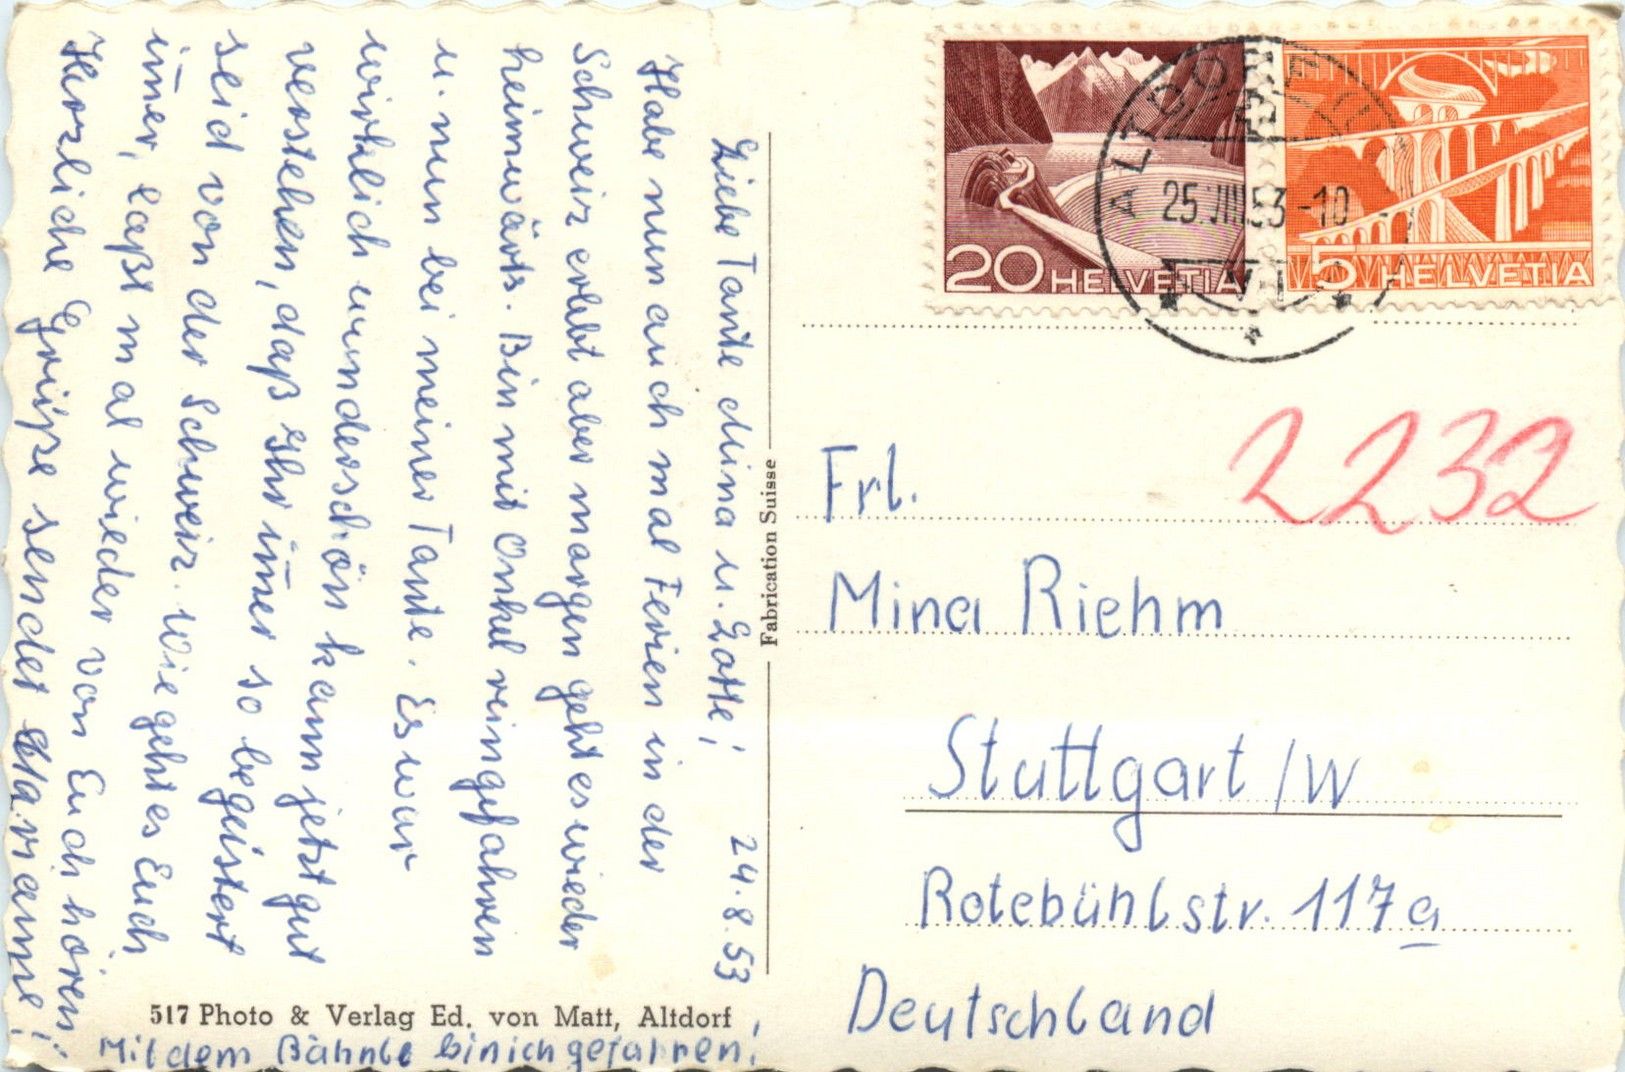 24.8.53
Liebe Tante Mina u. Lotte!
Habe nun auch mal Ferien in der
Schweiz erlebt aber morgen geht es wieder
heimwärts. Bin mit Onkel reingefahren
u. nun bei meiner Tante. Es war
wirklich wunderschön kann jetzt gut
verstehen, daß Ihr im̄er so begeistert
seid von der Schweiz. Wie geht es Euch
im̄er, laßt mal wieder von Euch hören!
Herzliche Grüße sendet Marianne!
517 Photo & Verlag Ed. von Matt, Altdorf
Mit dem Bähnle bin ich gefahren!
Fabrication Suisse
20 HELVETIA
5 HELVETIA
ALTDORF
25.VIII.53-10
2232
Frl.
Mina Riehm
Stuttgart/W
Rotebühlstr. 117a
Deutschland